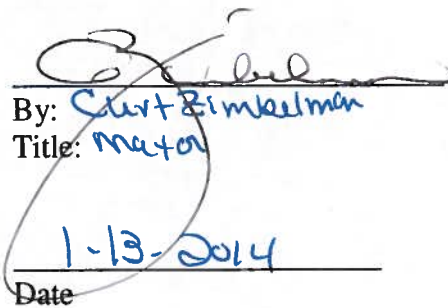 By: Curt Zimbelman
Title: Mayor
1-13-2014
Date